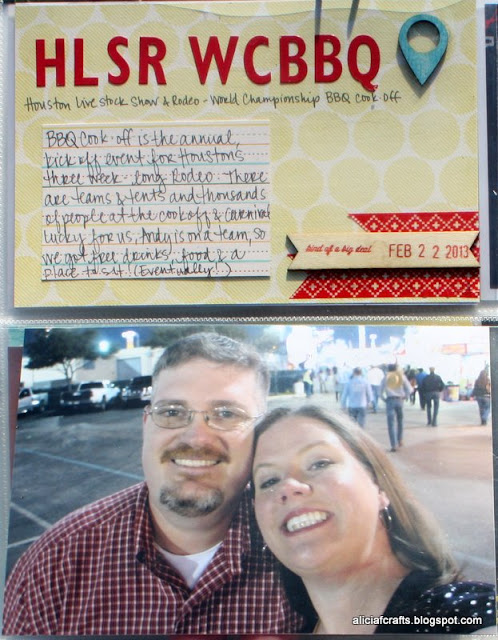 HLSR WCBBQ
Houston Livestock Show & Rodeo - World Championship BBQ Cook-off
BBQ Cook-off is the annual,
kick off event for Houston's
three week-long Rodeo. There
are teams & tents and thousands
of people at the cookoff & carnival
Lucky for us, Andy is on a team, so
we got free drinks, food & a
place to sit! (Eventually!!)
kind of a big deal
FEB 22 2013
aliciafcrafts.blogspot.com